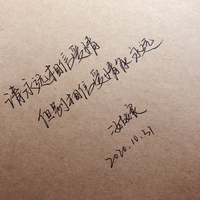 请永远相信爱情
但别相信爱情能永远
2020.10.31